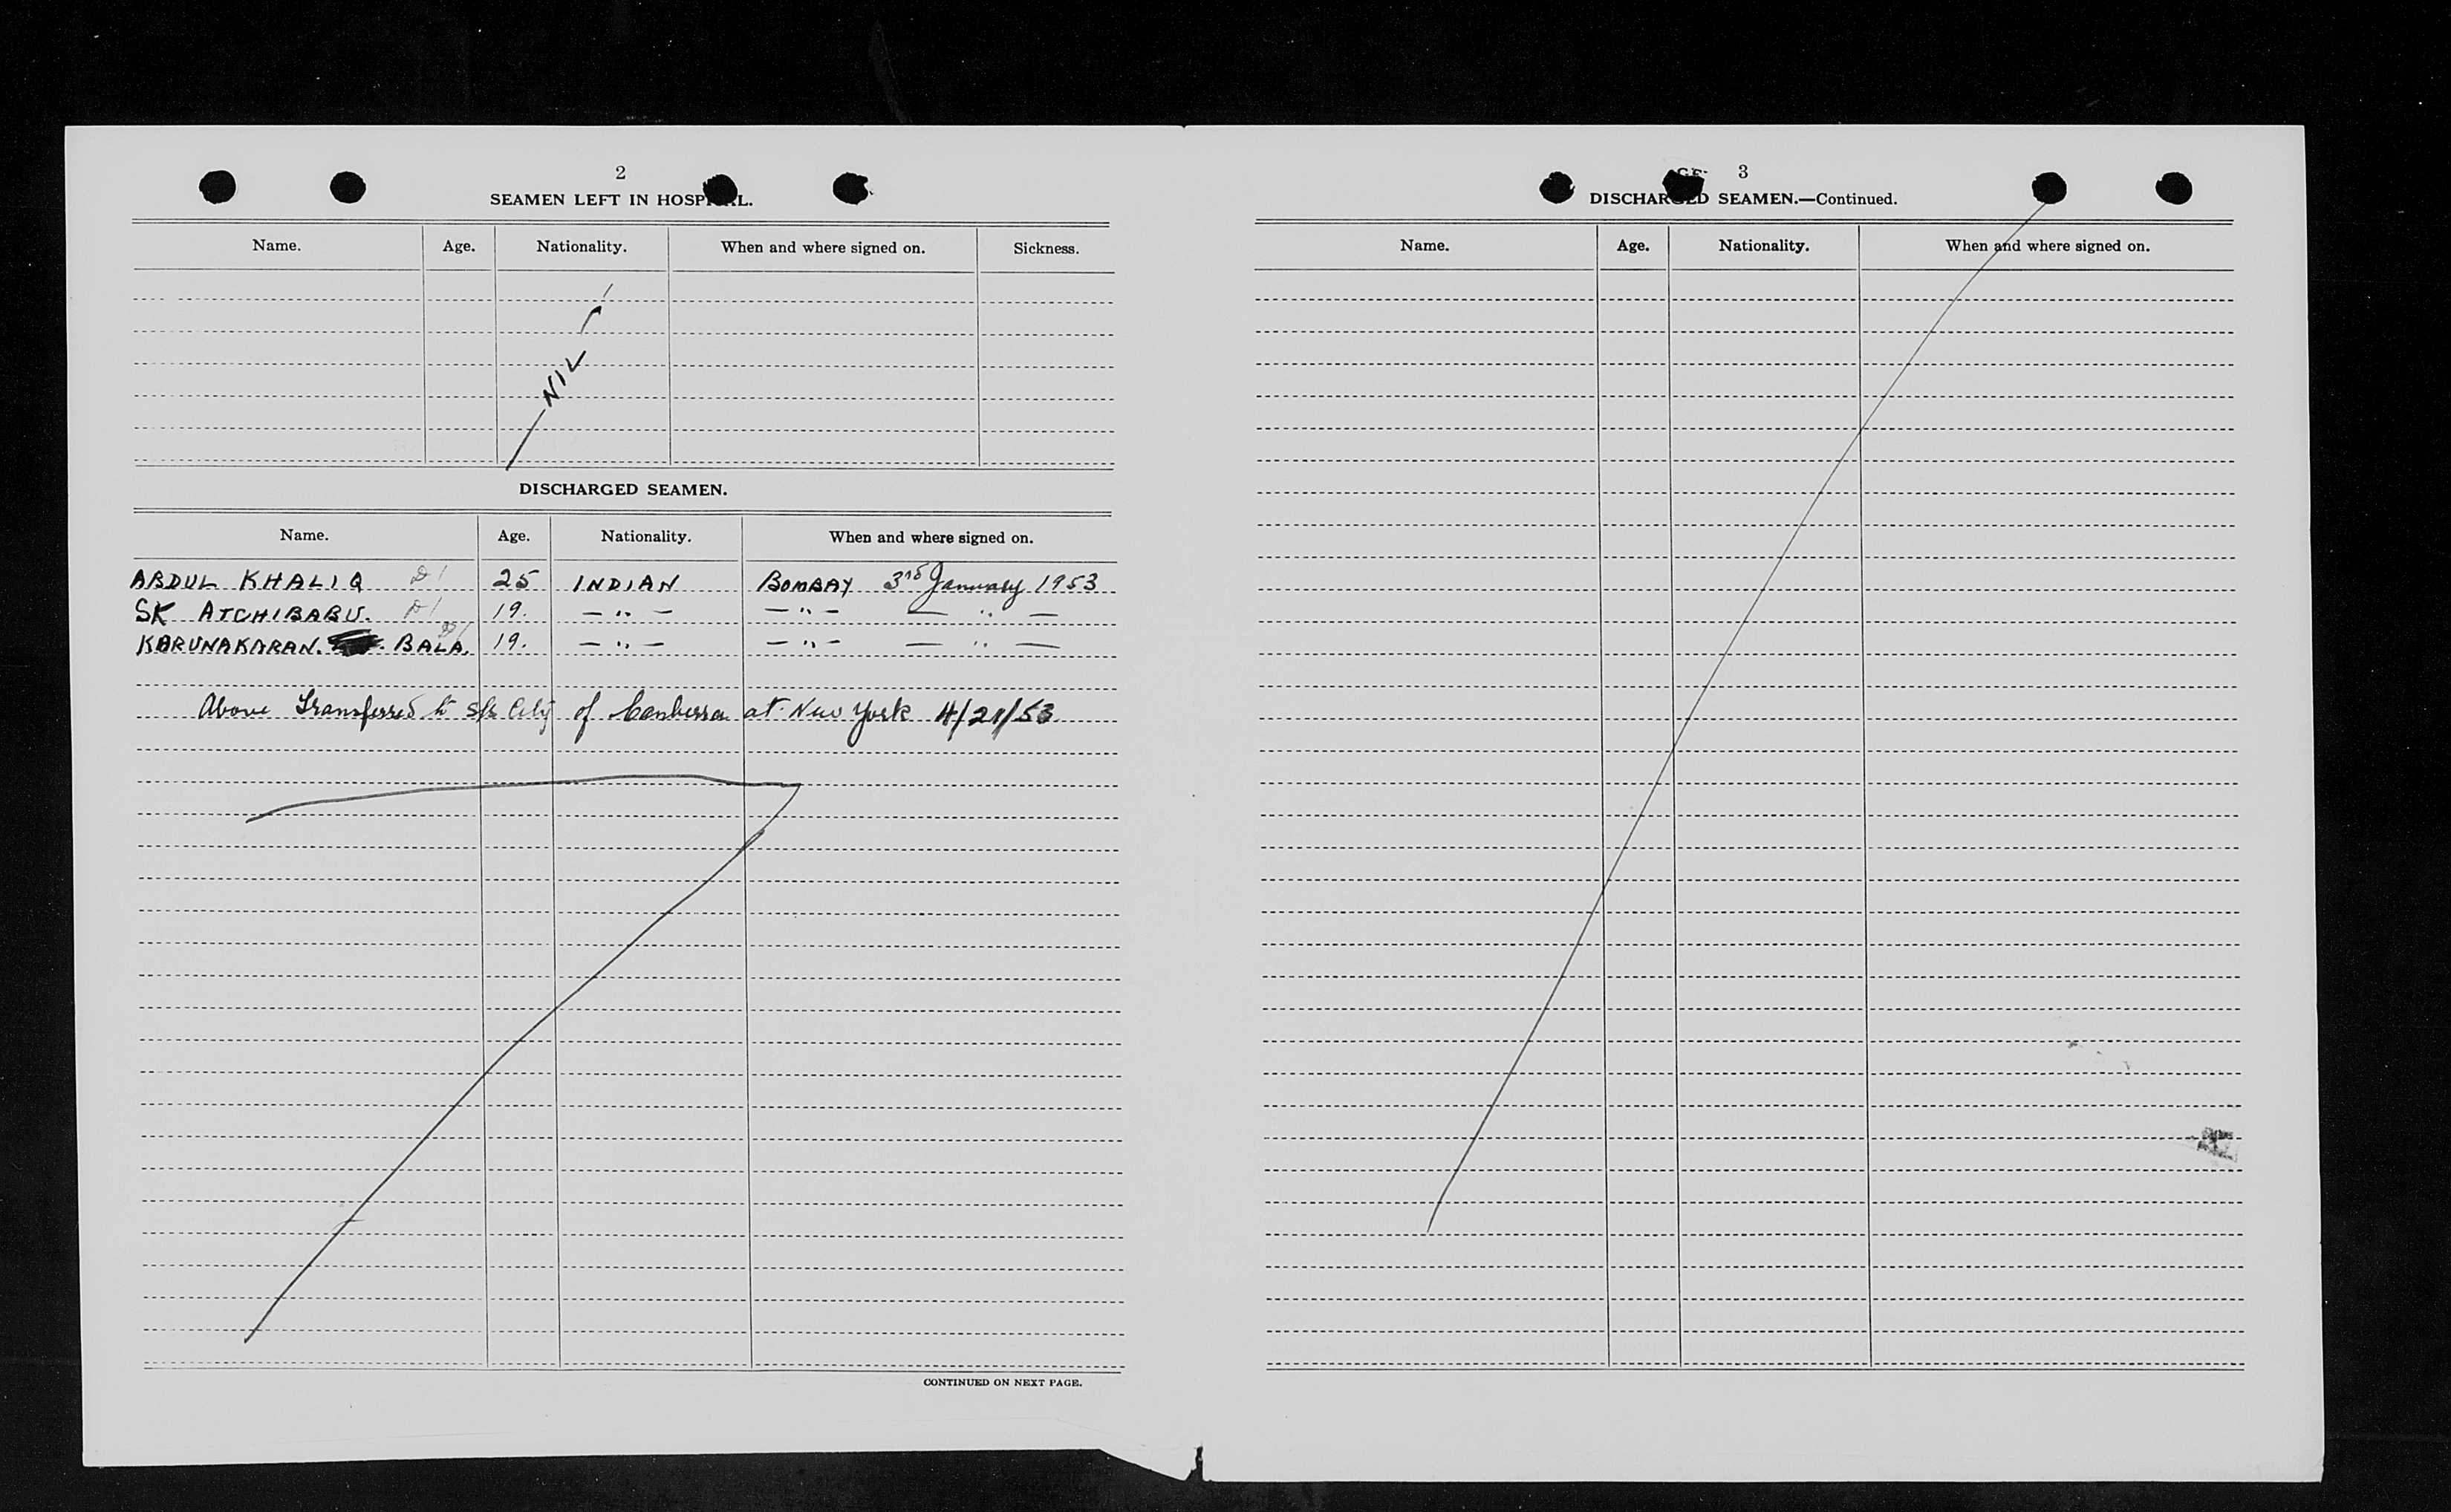 2
SEAMEN LEFT IN HOSPITAL.
Name. Age. Nationality. When and where signed on. Sickness.
NIL
DISCHARGED SEAMEN.
Name. Age. Nationality. When and where signed on.
ABDUL KHALIQ D1 25 INDIAN BOMBAY 3rd January 1953
SK ATCHIBABU. D1 19. — " — — " — — " —
KARUNAKARAN. BALA. D1 19. — " — — " — — " —
Above Transferred to s/s City of Canberra at New York 4/21/53
CONTINUED ON NEXT PAGE.
3
DISCHARGED SEAMEN.—Continued.
Name. Age. Nationality. When and where signed on.